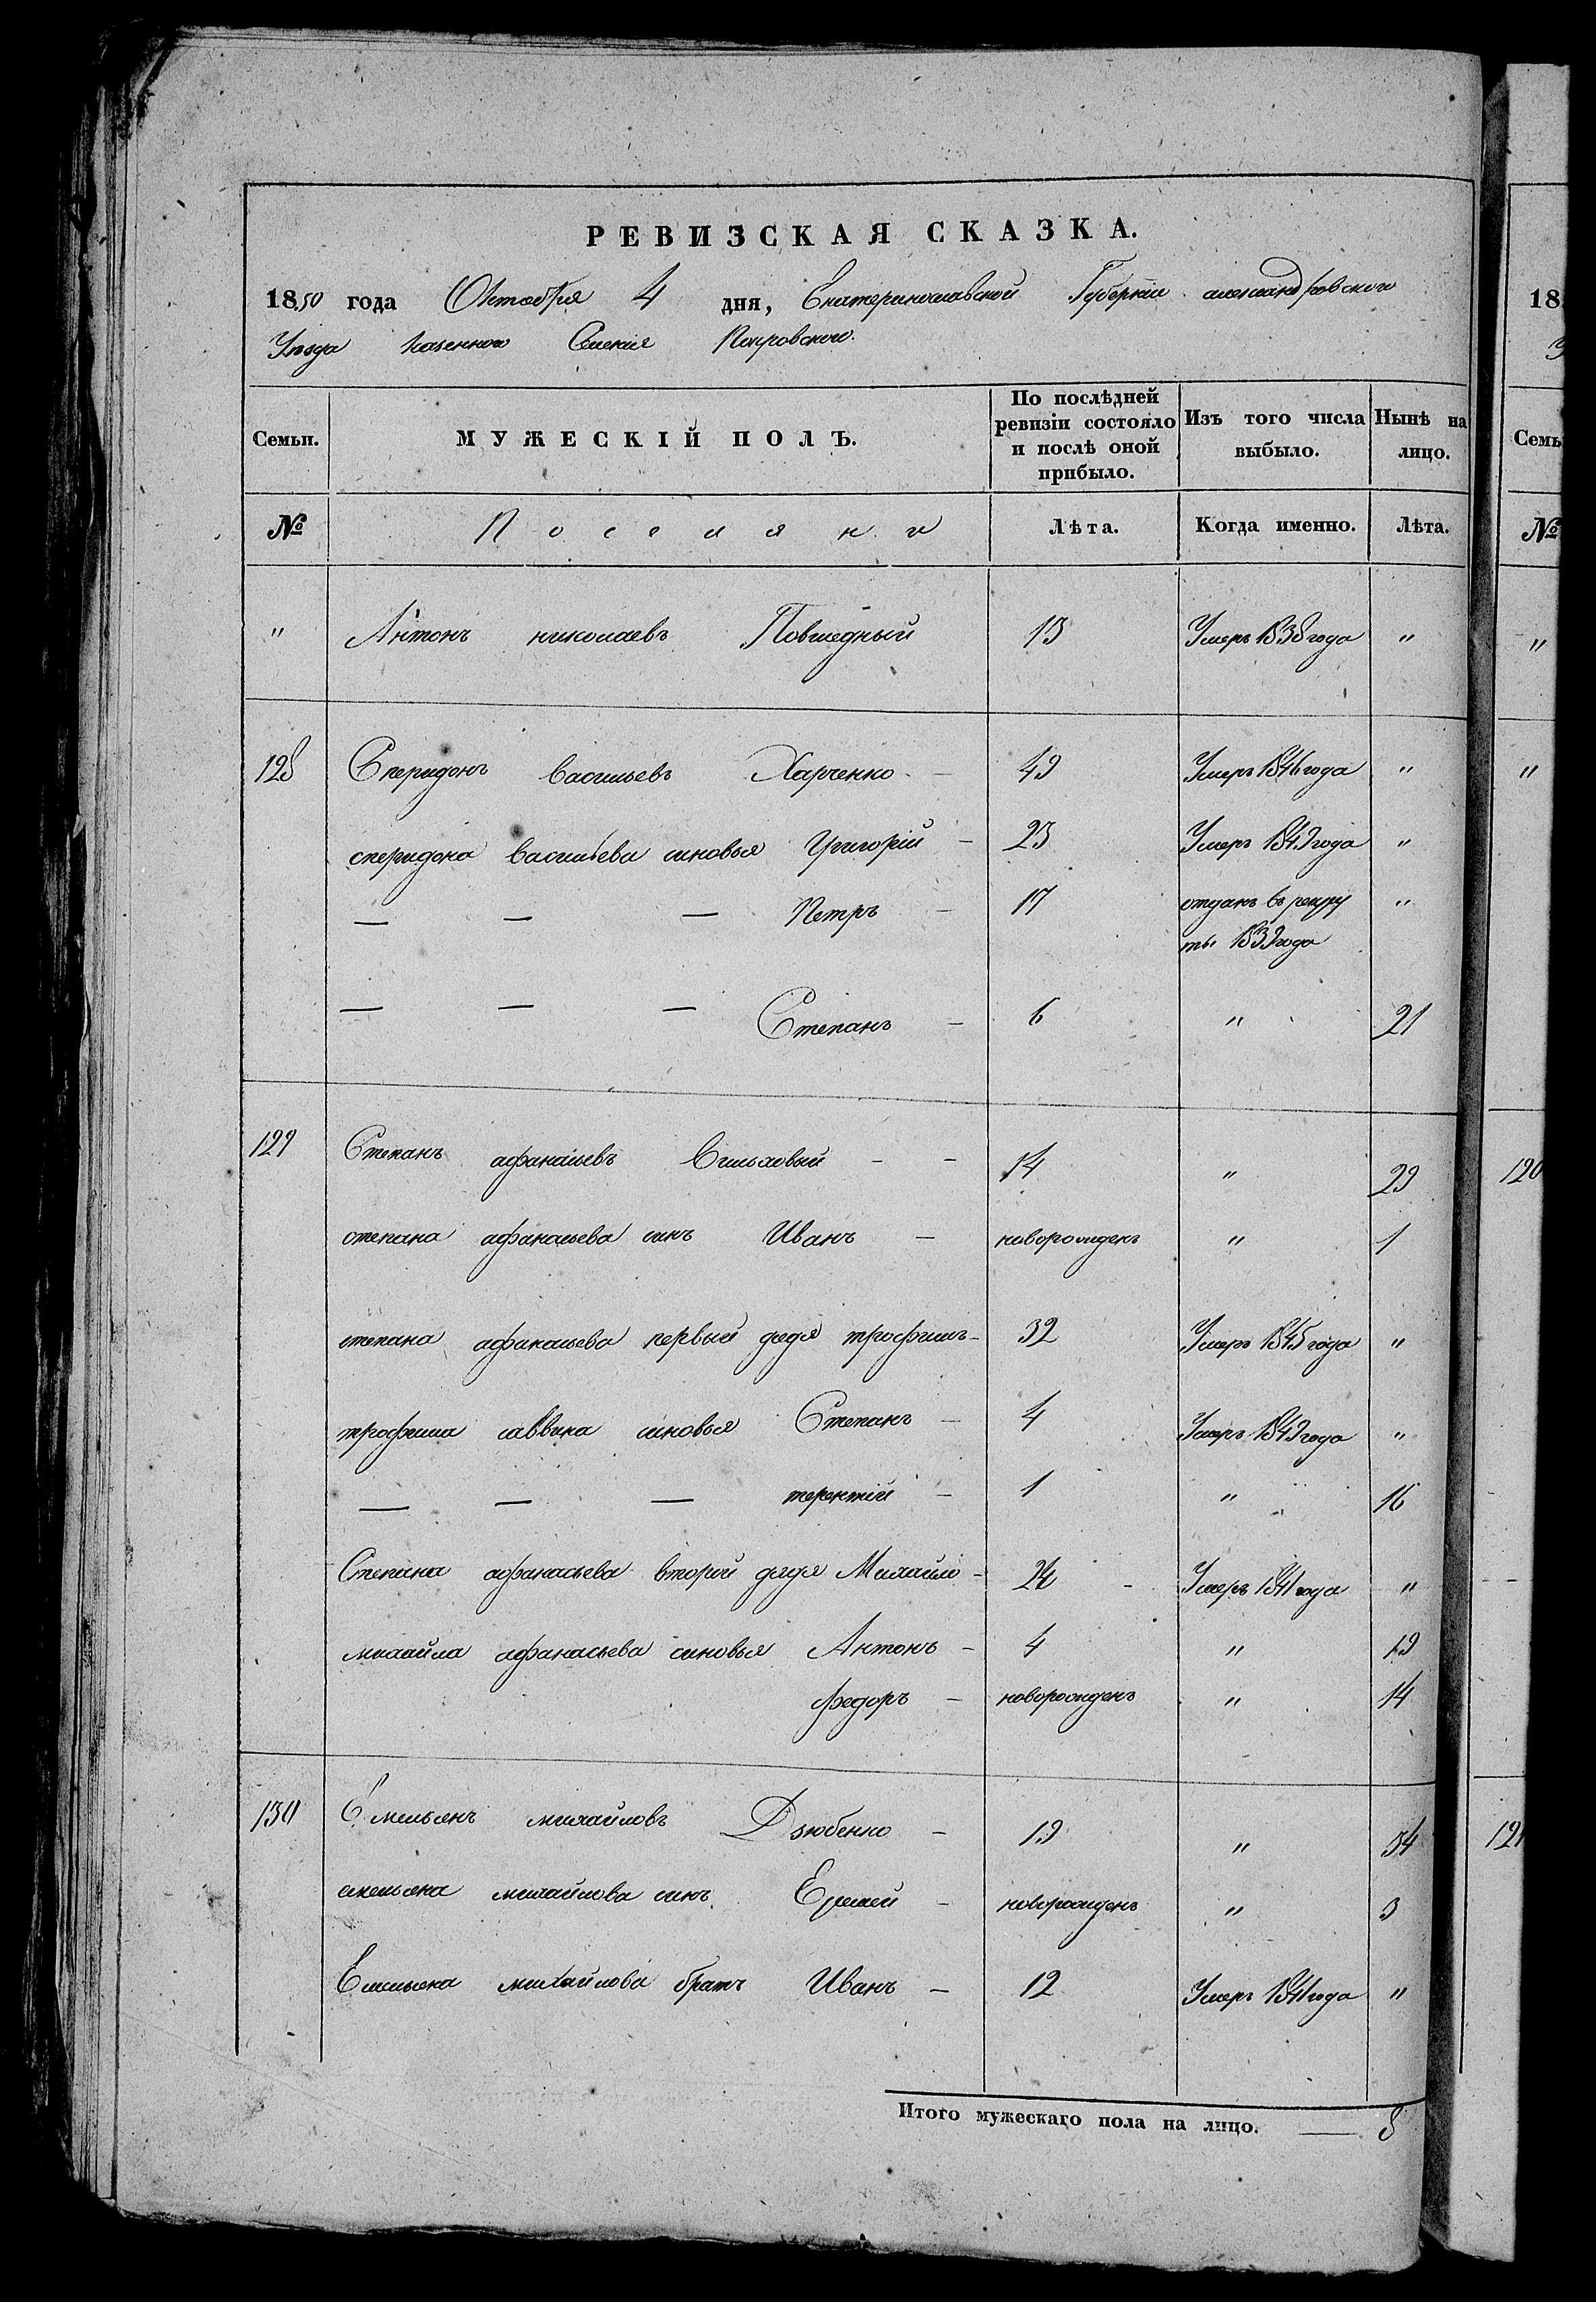 РЕВИЗСКАЯ СКАЗКА.
1850 года Октября 4 дня, Екатеринославской Губернии александровского
Уезда Казенного Селения Покровского.
Семьи. МУЖЕСКІЙ ПОЛЪ. По послѣдней ревизіи состояло и послѣ оной прибыло. Изъ того числа выбыло. Нынѣ на лицо.
№ Поселяни Лѣта. Когда именно. Лѣта.
" Антонъ николаевъ 13 Умеръ 1838 года "
128 Сперидонъ Васильевъ Харченко - 49 Умеръ 1846 года "
сперидона Васильева синовья Григорій - 23 Умеръ 1849 года "
— — — Петръ - 17 отданъ в рекру "
ты 1839 года
— — — Степанъ - 6 " 21
129 Степанъ афанасьевъ - - 14 " 29
степана афанасьева синъ Иванъ - новорожденъ " 1
степана афанасьева первый дядя трофимъ - 32 Умеръ 1845 года "
трофима саввина синовья Степанъ - 4 Умеръ 1849 года "
— — — терентій - 1 " 16
Степана афанасьева второй дядя Михайло - 24 - Умеръ 1841 года "
михайла афанасьева синовья Антонъ - 4 " 19
федоръ - новорожденъ " 14
130 Емельянъ михайловъ Дзюбенко - 19 " 34
емельяна михайлова синъ Еремей - новорожденъ " 3
Емельяна михайлова братъ Иванъ - 12 Умеръ 1841 года "
Итого мужескаго пола на лицо. — 8
18
Семь
№
"
"
120
121